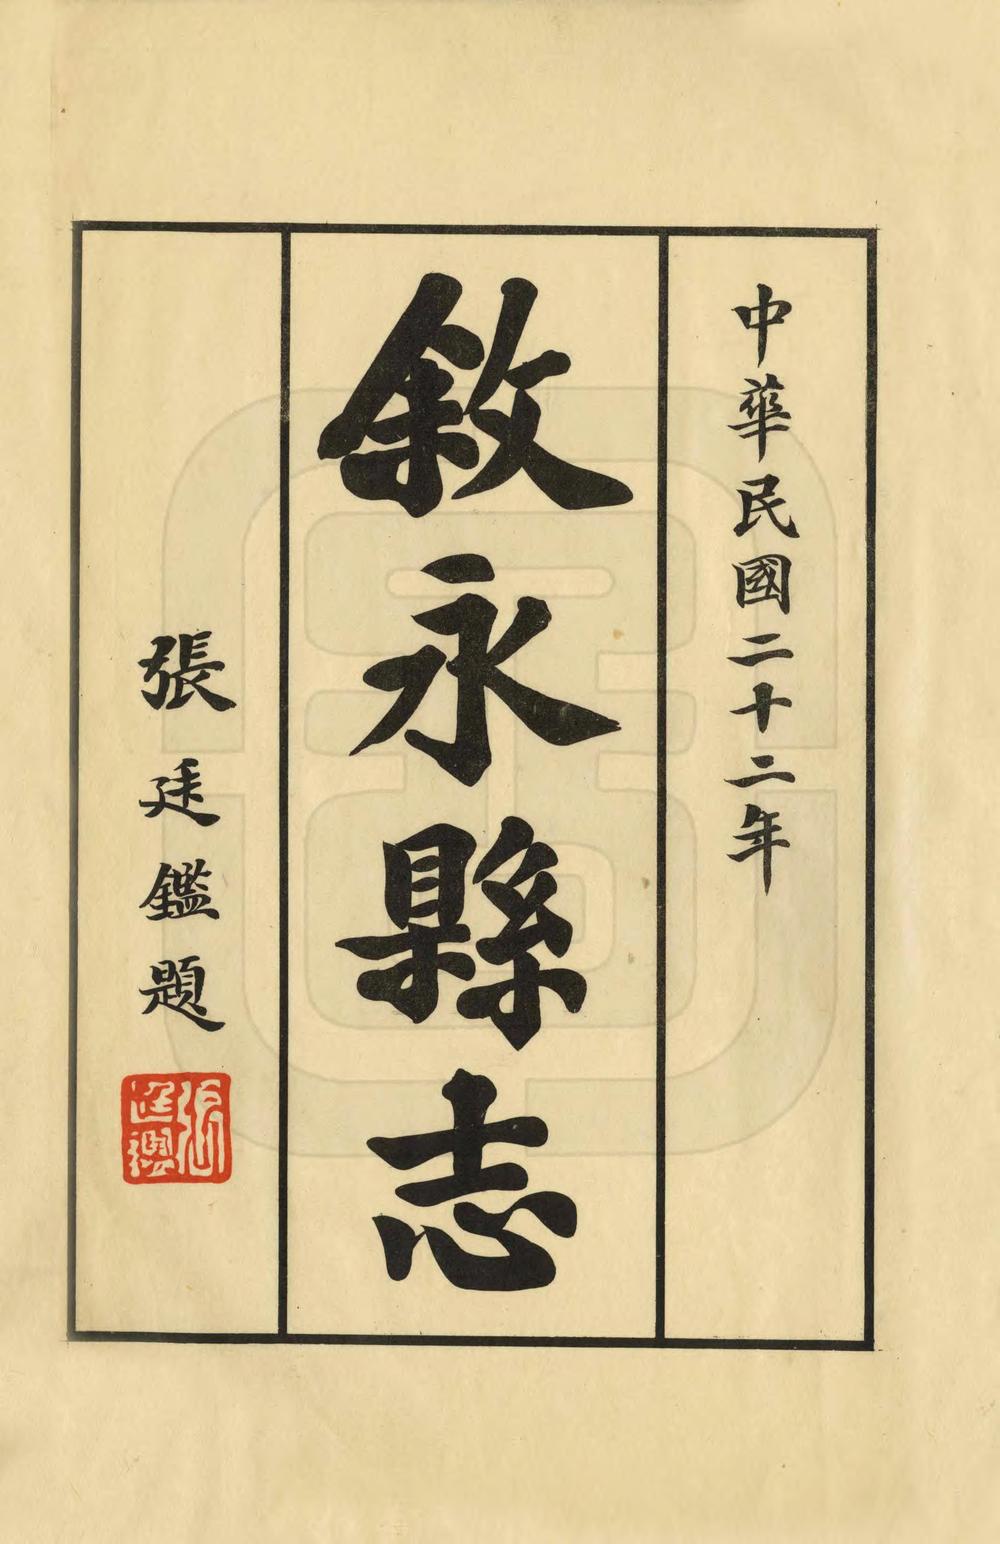 中華民國二十二年
敘永縣志
張廷鑑題